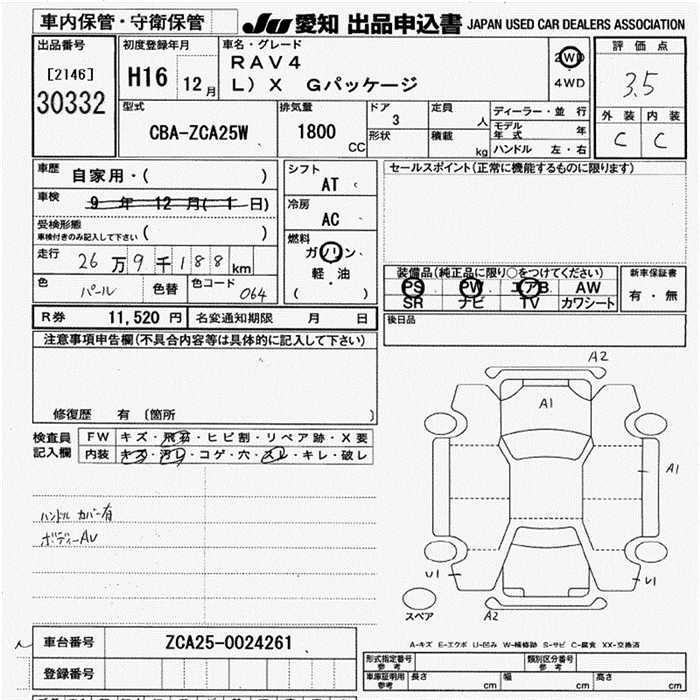 車内保管・守衛保管
JU 愛知 出品申込書 JAPAN USED CAR DEALERS ASSOCIATION
出品番号
[2146]
30332
初度登録年月
H16 12月
車名・グレード
RAV4
L)X Gパッケージ
2WD
4WD
評価点
3.5
外装 内装
C C
型式
CBA-ZCA25W
排気量
1800
CC
ドア
3
形状
定員
人
積載
kg
ディーラー・並行
モデル年式 年
ハンドル 左・右
車歴
自家用・( )
車検
9年 12月(1日)
受検形態
車検付きのみ記入して下さい ( )
走行
26万9千188km
色
パール
色替
色コード
064
シフト
AT
冷房
AC
燃料
ガソリン
軽・油
( )
セールスポイント(正常に機能するものに限ります)
装備品(純正品に限り○をつけてください)
PS PW エアB AW
SR ナビ TV カワシート
新車保証書
有・無
後日品
R券 11,520円 名変通知期限 月 日
注意事項申告欄(不具合内容等は具体的に記入して下さい)
修復歴 有 〔箇所 〕
検査員記入欄
FW キズ・飛石・ヒビ割・リペア跡・X要
内装 キズ・汚レ・コゲ・穴・スレ・キレ・破レ
ハンドル カバー有
ボディーAU
A2
A1
A1
U1
U1
A2
スペア
A-キズ E-エクボ U-凹み W-補修跡 S-サビ C-腐食 XX-交換済
車台番号 ZCA25-0024261
登録番号
形式指定番号 参考
類別区分番号 参考
車庫証明用参考
長さ cm 幅 cm 高さ cm